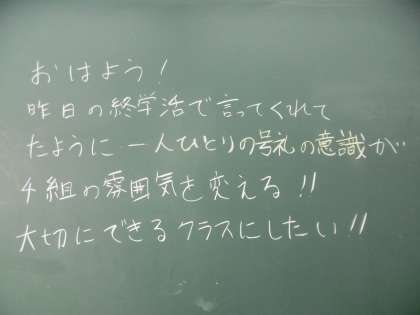 おはよう!
昨日の終学活で言ってくれて
たように一人ひとりの号礼の意識が
4組の雰囲気を変える!!
大切にできるクラスにしたい!!